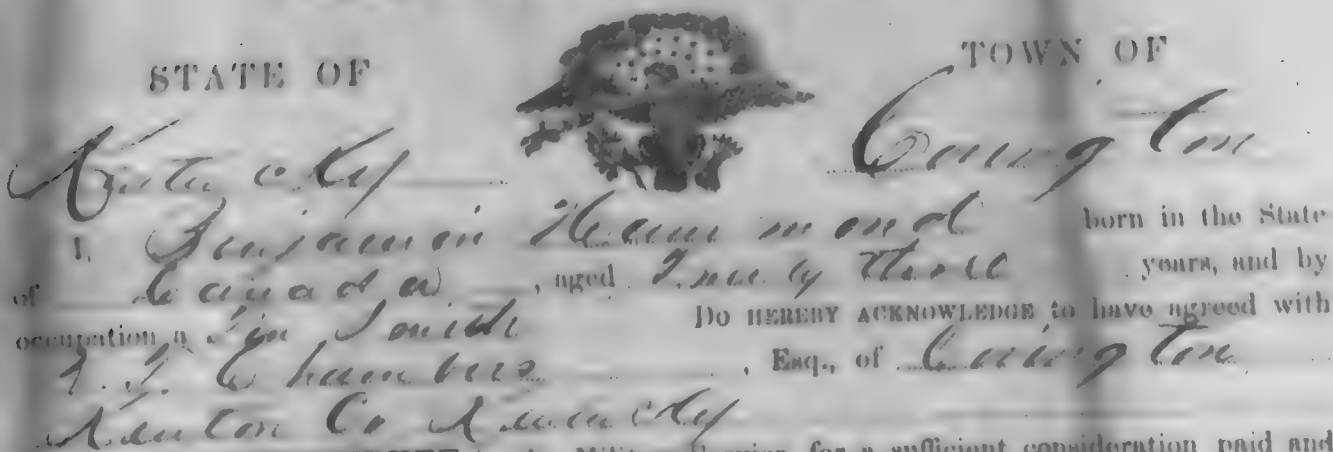 STATE OF TOWN OF
Kentucky Covington
I, Benjamin Hammond born in the State
of Canada, aged Twenty three years, and by
occupation a Tin Smith Do HEREBY ACKNOWLEDGE to have agreed with
Chambers, Esq., of Covington
Kenton Co Kentucky
for a sufficient consideration paid and